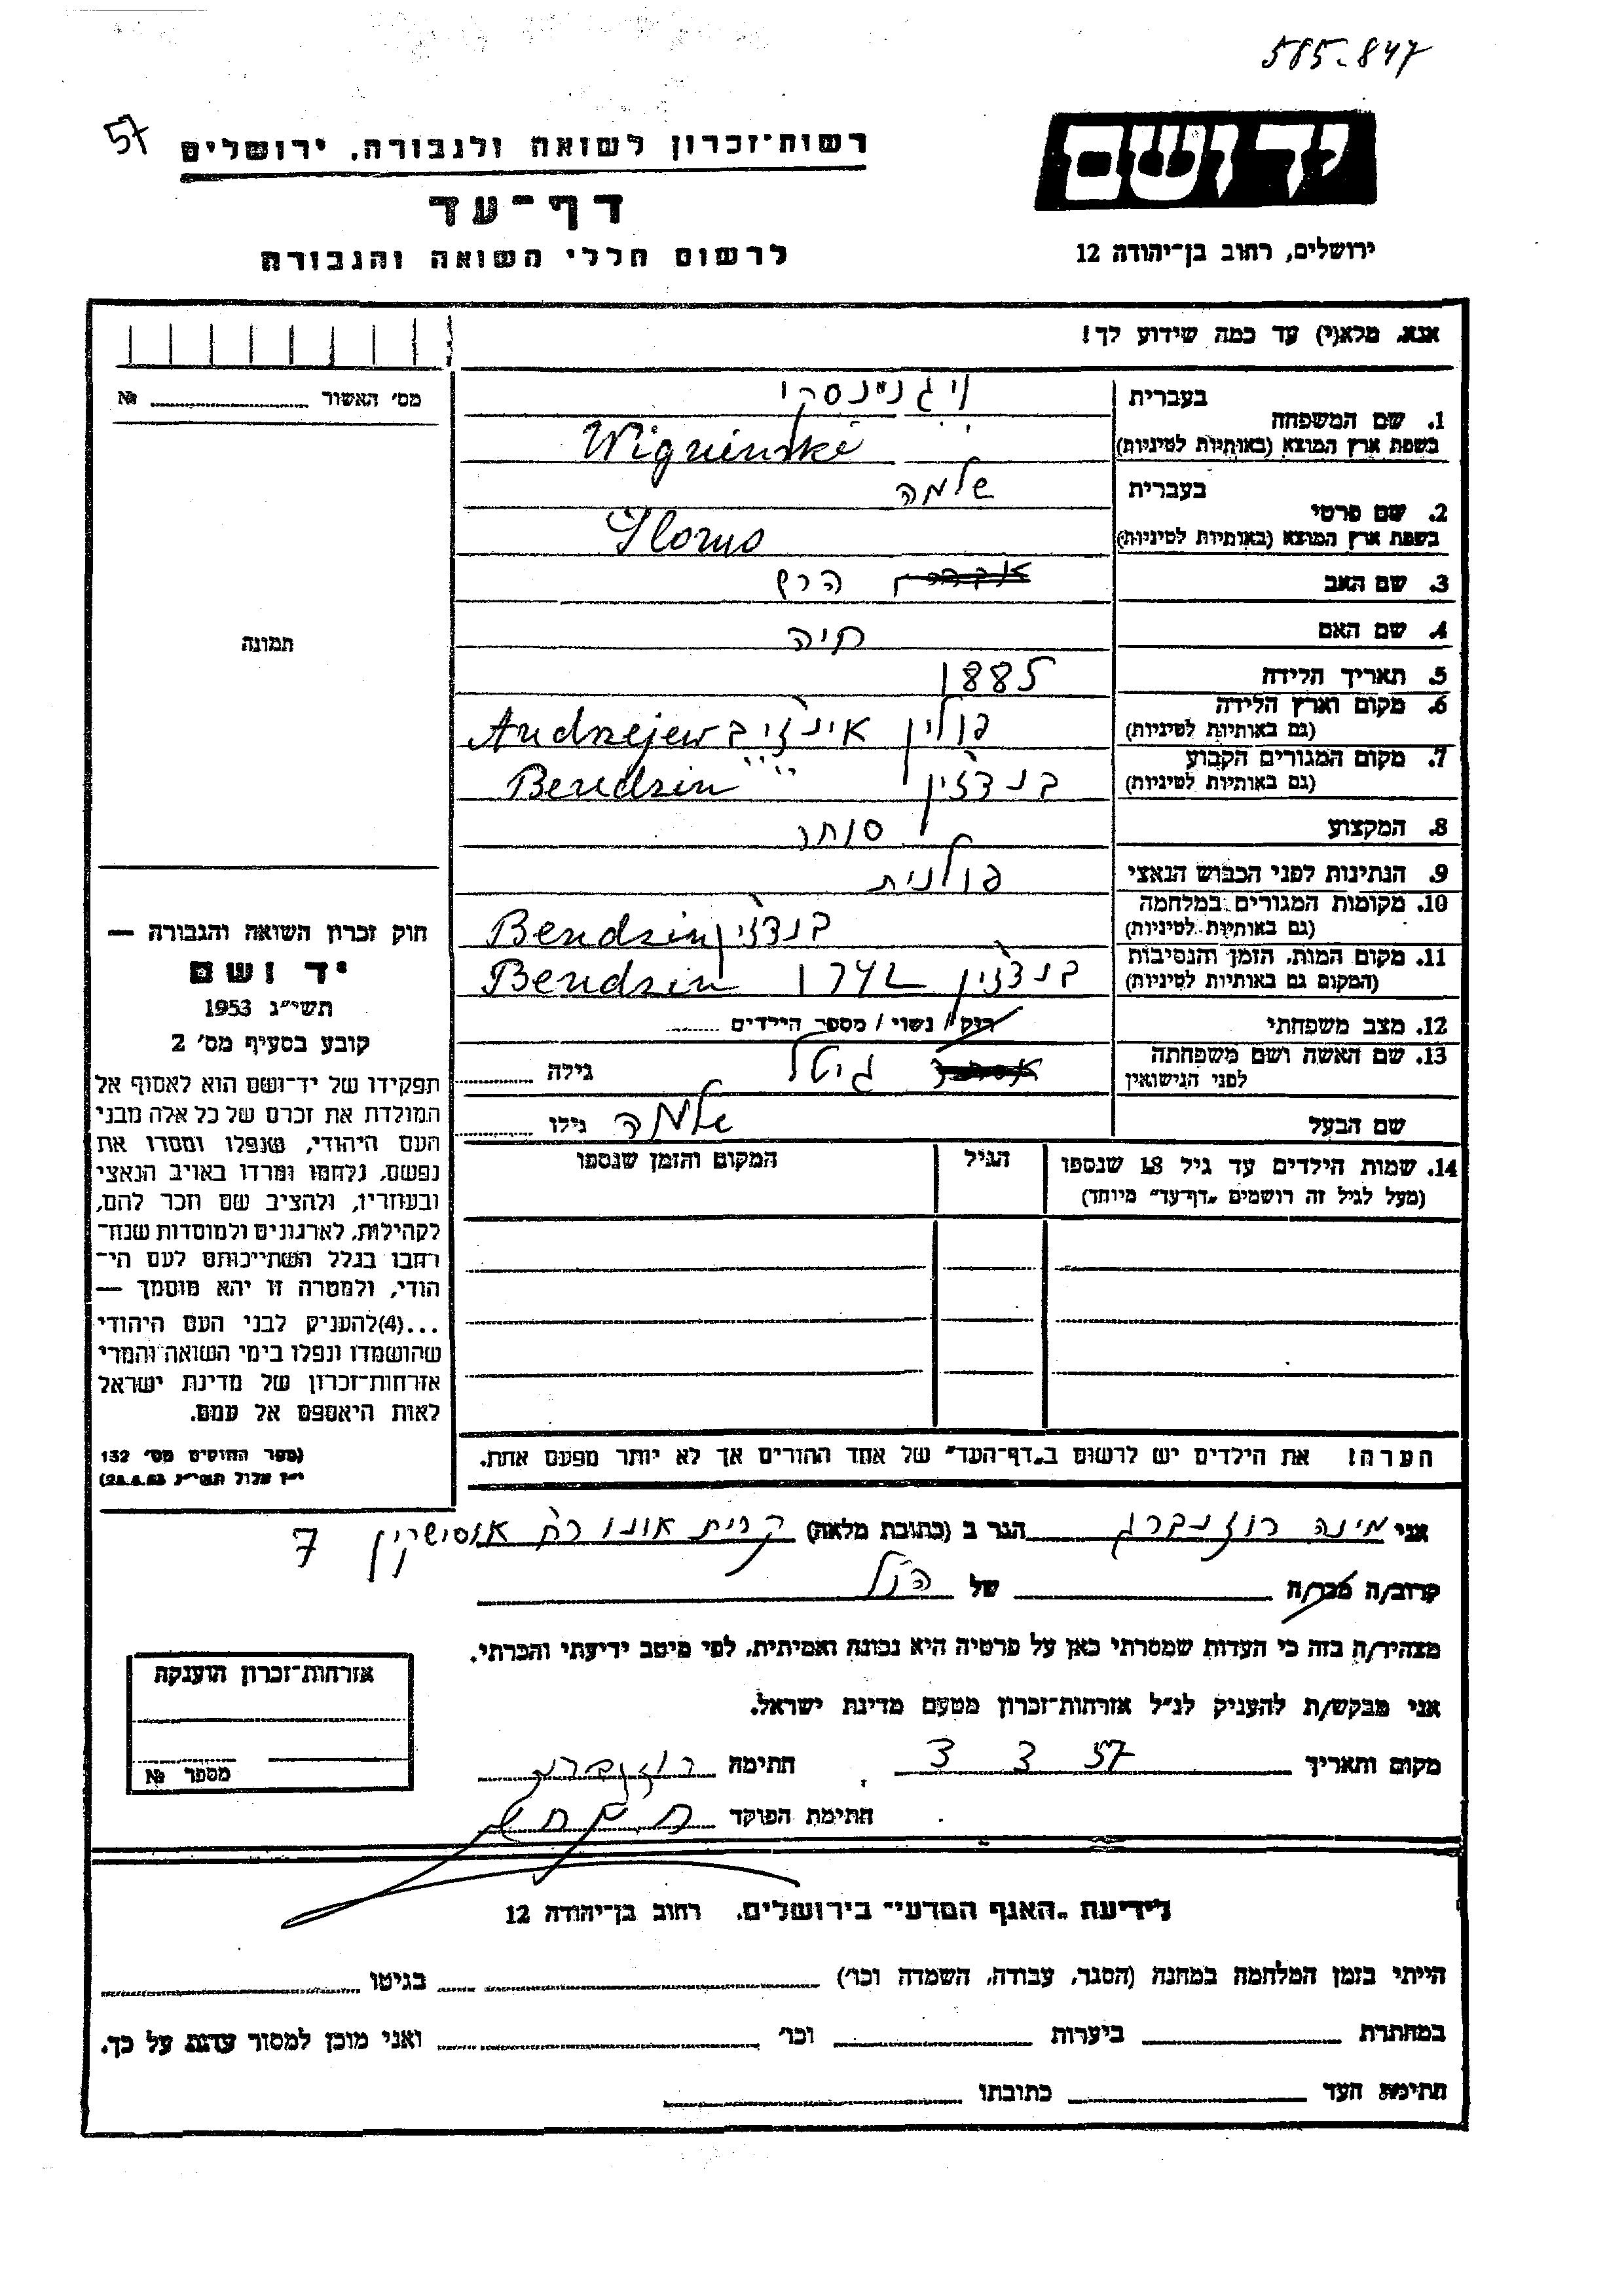 585-847
57
יד ושם
רשות־זכרון לשואה ולגבורה, ירושלים
דף־עד
לרשום חללי השואה והגבורה
ירושלים, רחוב בן־יהודה 12
אנא, מלא(י) עד כמה שידוע לך!
מס׳ האשור № 
1. שם המשפחה בעברית ויגנינסקי
בשפת ארץ המוצא (באותיות לטיניות) Wigninski
2. שם פרטי בעברית שלמה
בשפת ארץ המוצא (באותיות לטיניות) Slomo
3. שם האב הרץ
4. שם האם חיה
תמונה
5. תאריך הלידה 1885
6. מקום וארץ הלידה
(גם באותיות לטיניות) פולין אינדזיב Andrzejew
7. מקום המגורים הקבוע
(גם באותיות לטיניות) בנדזין Bendzin
8. המקצוע סוחר
9. הנתינות לפני הכבוש הנאצי פולנית
10. מקומות המגורים במלחמה
(גם באותיות לטיניות) בנדזין Bendzin
11. מקום המות, הזמן והנסיבות
(המקום גם באותיות לטיניות) בנדזין 1942 Bendzin
12. מצב משפחתי רוק/ נשוי/ מספר הילדים
13. שם האשה ושם משפחתה
לפני הנישואין גיטל גילה
שם הבעל שלמה גילו
14. שמות הילדים עד גיל 18 שנספו הגיל המקום והזמן שנספו
(מעל לגיל זה רושמים „דף־עד״ מיוחד)
חוק זכרון השואה והגבורה —
יד ושם
תשי״ג 1953
קובע בסעיף מס׳ 2
תפקידו של יד־ושם הוא לאסוף אל
המולדת את זכרם של כל אלה מבני
העם היהודי, שנפלו ומסרו את
נפשם, נלחמו ומרדו באויב הנאצי
ובעוזריו, ולהציב שם וזכר להם,
לקהילות, לארגונים ולמוסדות שנח־
רחבו בגלל השתייכותם לעם הי־
הודי, ולמטרה זו יהא מוסמך —
...(4) להעניק לבני העם היהודי
שהושמדו ונפלו בימי השואה והמרי
אזרחות־זכרון של מדינת ישראל
לאות היאספם אל עמם.
(ספר החוקים מס׳ 132
י״ז אלול תשי״ג 28.8.53)
הערה! את הילדים יש לרשום ב„דף־העד״ של אחד ההורים אך לא יותר מפעם אחת.
אני מינה רוזנברג הגר ב (כתובת מלאה) קרית אונו רח׳ אוסישקין 7
קרוב/ה מכר/ה של הנ״ל
מצהיר/ה בזה כי העדות שמסרתי כאן על פרטיה היא נכונה ואמיתית, לפי מיטב ידיעתי והכרתי.
אני מבקש/ת להעניק לנ״ל אזרחות־זכרון מטעם מדינת ישראל.
מקום ותאריך 3 3 57 חתימה רוזנברג
חתימת הפוקד
אזרחות־זכרון הוענקה
מספר №
לידיעת „האגף המדעי״ בירושלים, רחוב בן־יהודה 12
הייתי בזמן המלחמה במחנה (הסגר, עבודה, השמדה וכו׳) בגיטו
במחתרת ביערות וכו׳ ואני מוכן למסור עדות על כך.
חתימת העד כתובתו